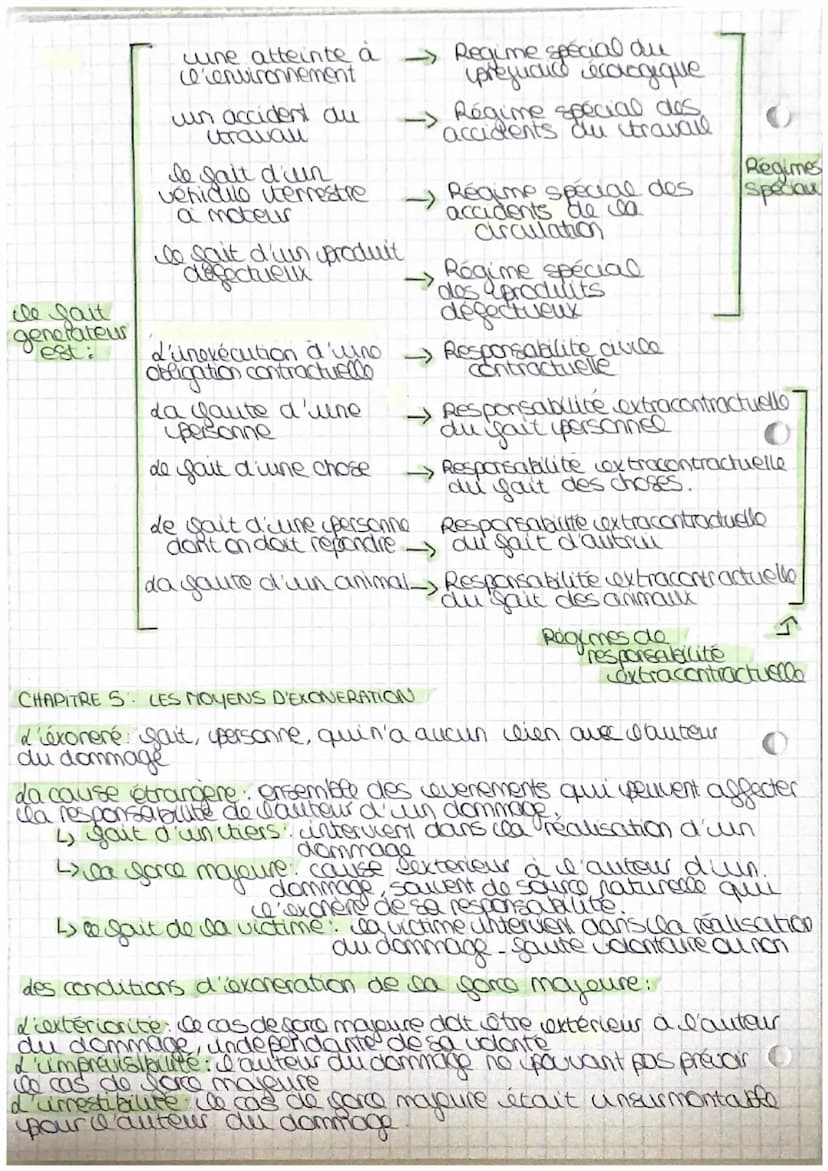 une atteinte à → Regime spécial du
l'environnement préjudice écologique
un accident du → Régime spécial des
travail accidents du travail
le fait d'un
véhicule terrestre → Régime spécial des
à moteur accidents de la
circulation
Régimes
spéciaux
le fait d'un produit
défectueux → Régime spécial
des produits
défectueux
le fait
generateur
est :
d'inexécution d'une → Responsabilité civile
obligation contractuelle contractuelle
la faute d'une → Responsabilité extracontractuelle
personne du fait personnel
le fait d'une chose → Responsabilité extracontractuelle
du fait des choses.
le fait d'une personne Responsabilité extracontractuelle
dont on doit répondre → du fait d'autrui
la faute d'un animal → Responsabilité extracontractuelle
du fait des animaux
Régimes de
responsabilité
extracontractuelle
CHAPITRE 5 : LES MOYENS D'EXONERATION
L'éxoneré : fait, personne, qui n'a aucun lien avec l'auteur
du dommage
La cause étrangère : ensemble des evenements qui peuvent affecter
la responsabilité de l'auteur d'un dommage.
↳ fait d'un tiers : intervient dans la réalisation d'un
dommage
↳ la force majeure : cause exterieur à l'auteur d'un
dommage, souvent de source naturelle qui
l'exonère de sa responsabilité.
↳ le fait de la victime : la victime intervient dans la réalisation
du dommage - faute volontaire ou non
Les conditions d'exoneration de la force majeure :
L'extériorité : le cas de force majeure doit être extérieur à l'auteur
du dommage, independante de sa volonté
L'imprévisibilité : l'auteur du dommage ne pouvant pas prévoir
le cas de force majeure
L'irrestibilité : le cas de force majeure était insurmontable
pour l'auteur du dommage.